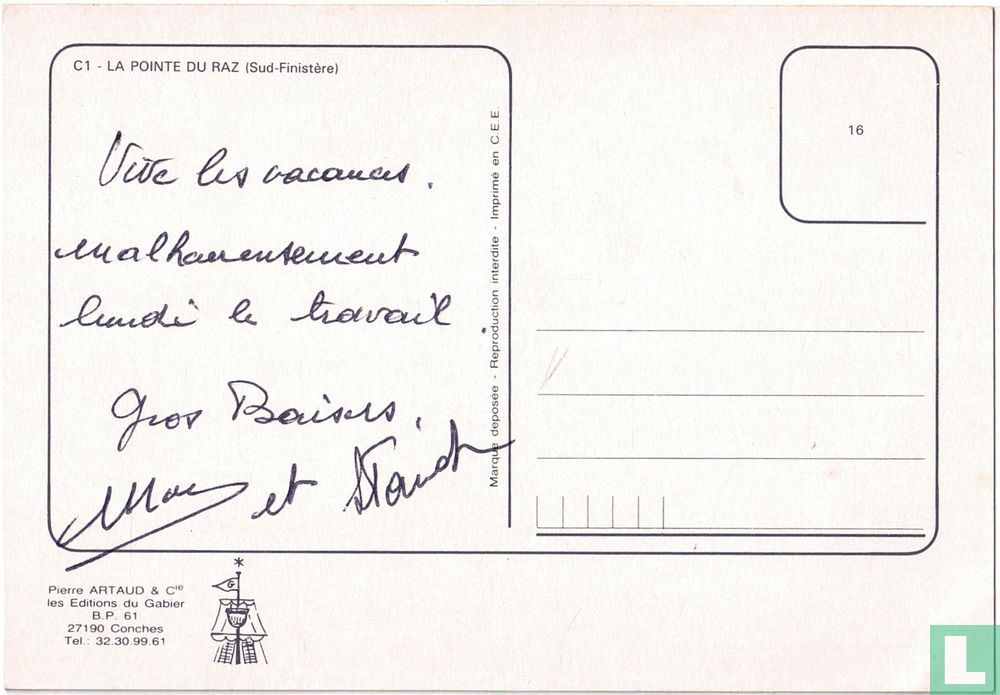 C1 - LA POINTE DU RAZ (Sud-Finistère)
Vive les vacances.
malheureusement
lundi le travail.
Gros Baisers.
et
Marque deposée - Reproduction interdite - Imprimé en C.E.E.
16
Pierre ARTAUD & Cie
les Editions du Gabier
B.P. 61
27190 Conches
Tel.: 32.30.99.61
G
L